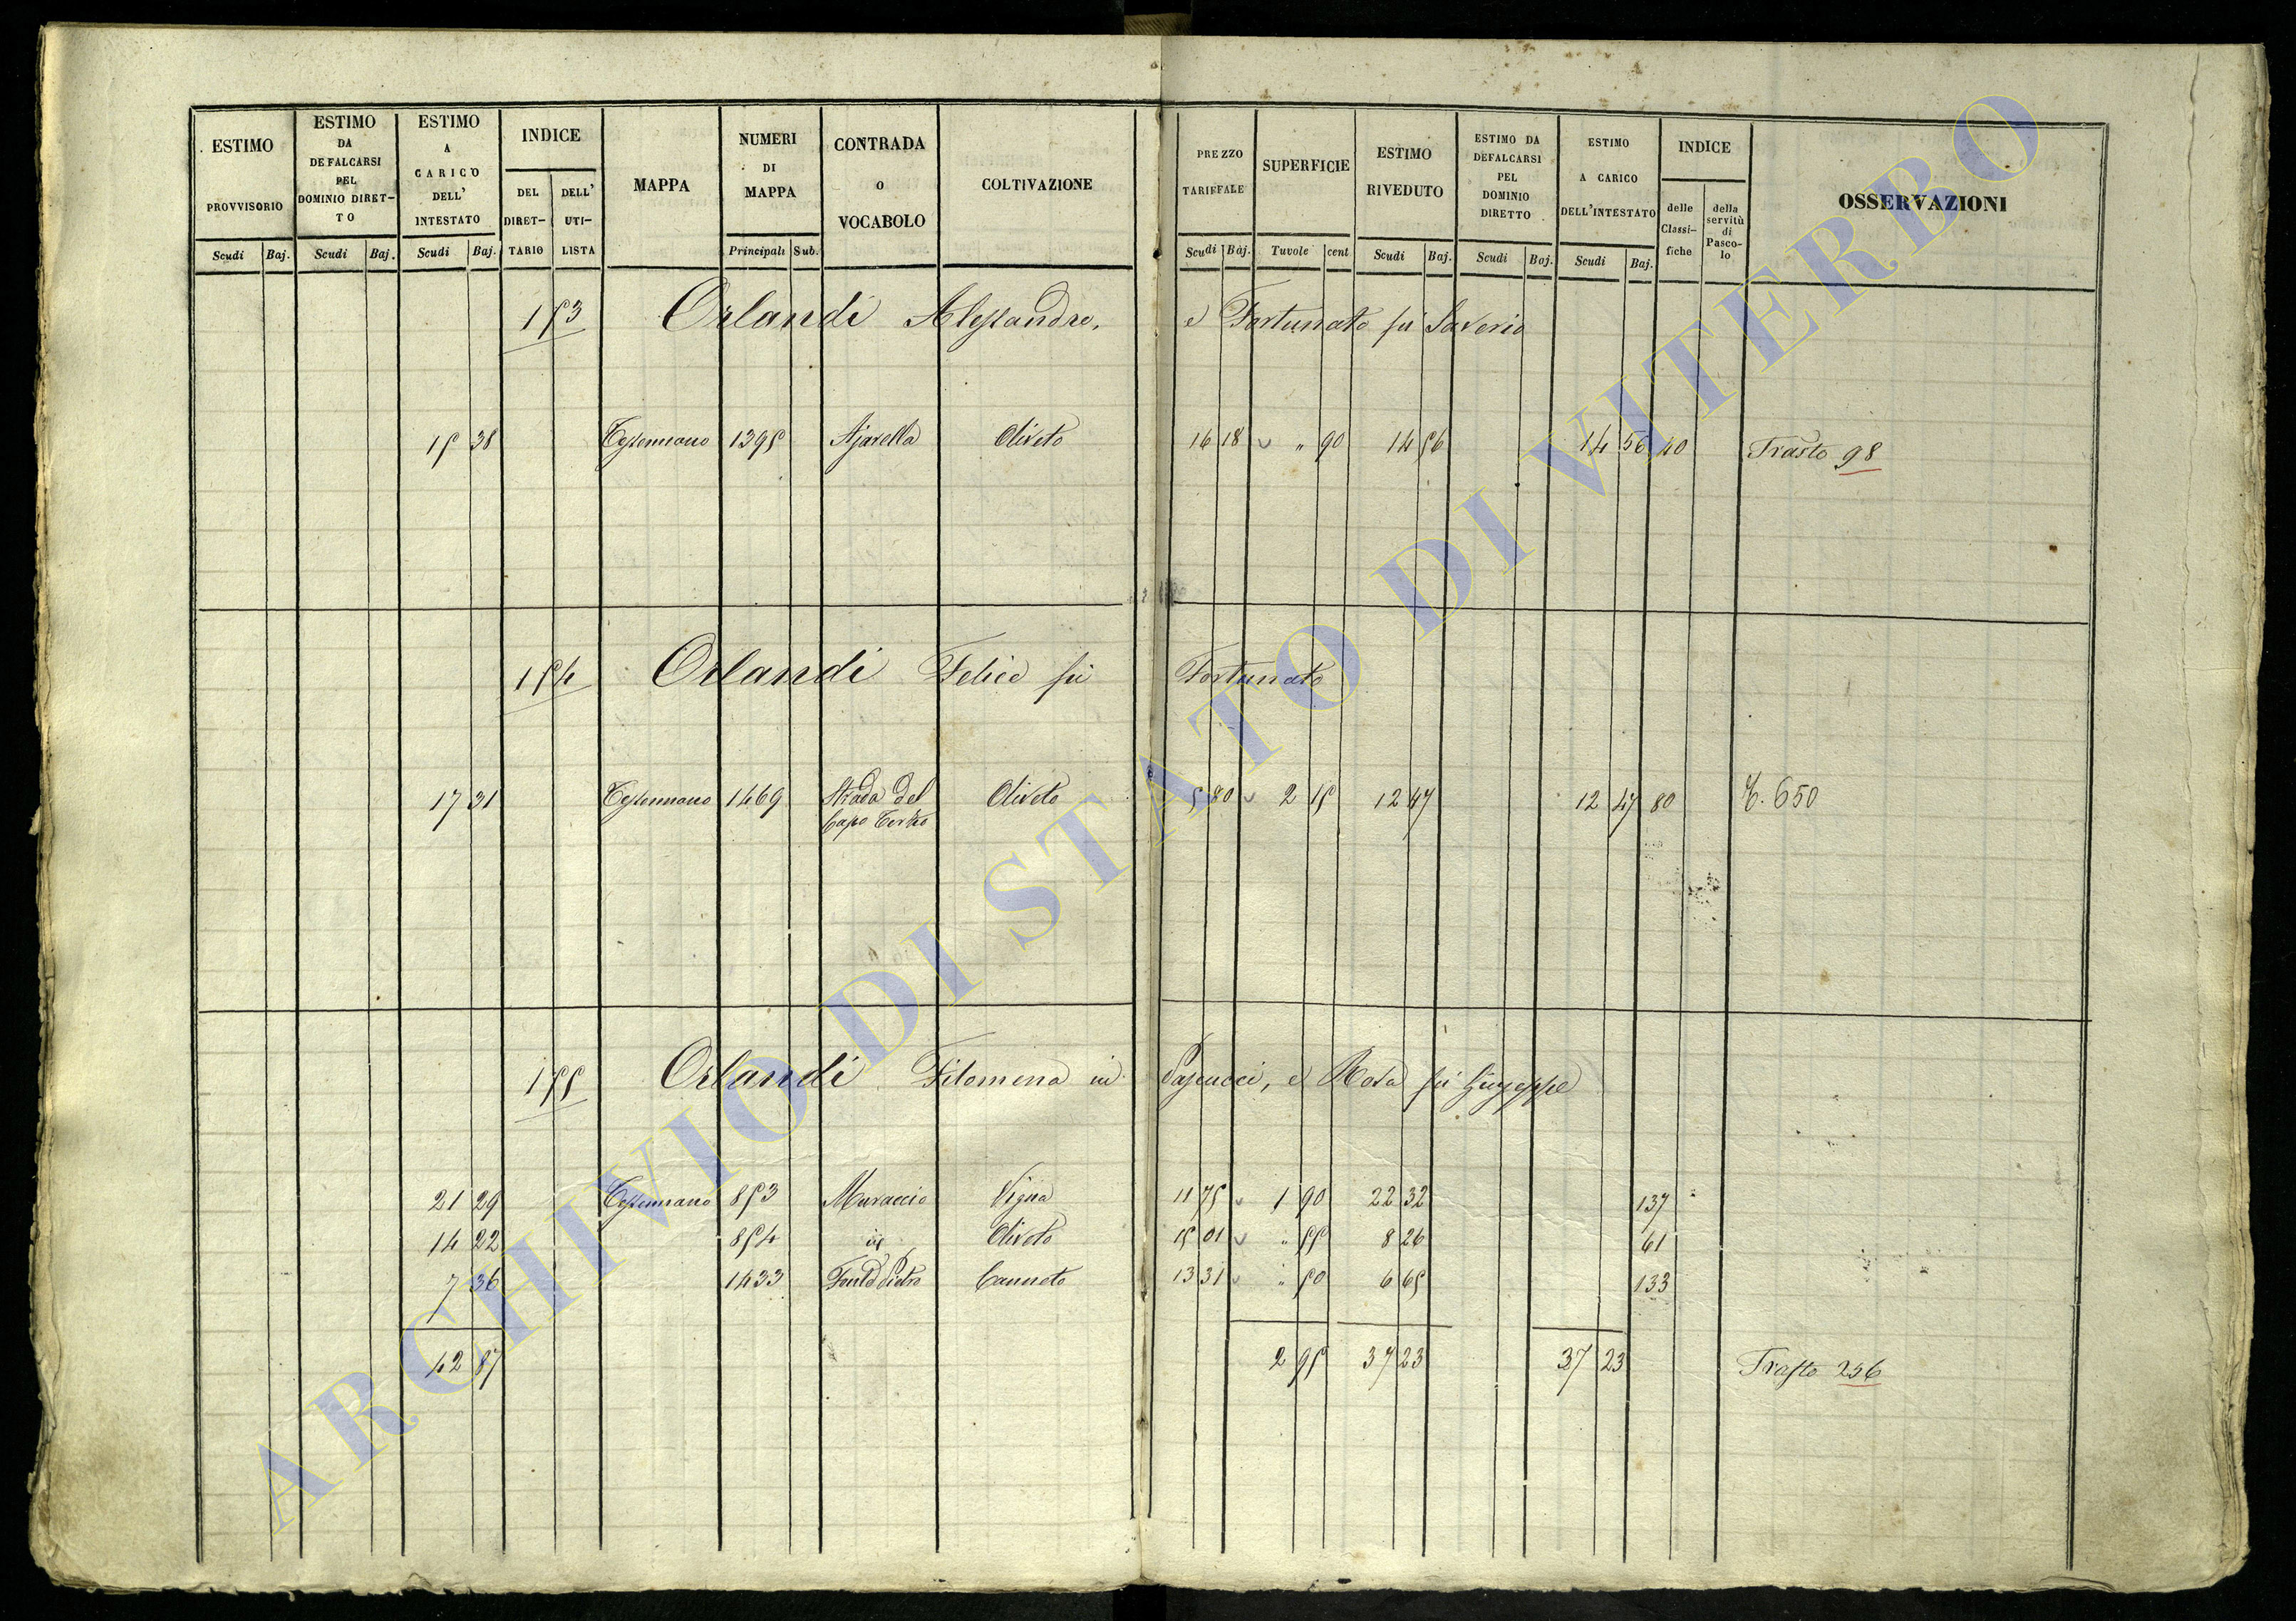 ESTIMO PROVVISORIO Scudi Baj.
ESTIMO DA DEFALCARSI PEL DOMINIO DIRET-TO Scudi Baj.
ESTIMO A CARICO DELL' INTESTATO Scudi Baj.
INDICE DEL DIRET-TARIO DELL' UTI-LISTA
MAPPA
NUMERI DI MAPPA Principali Sub.
CONTRADA O VOCABOLO
COLTIVAZIONE
PREZZO TARIFFALE Scudi Baj.
SUPERFICIE Tavole cent
ESTIMO RIVEDUTO Scudi Baj.
ESTIMO DA DEFALCARSI PEL DOMINIO DIRETTO Scudi Baj.
ESTIMO A CARICO DELL'INTESTATO Scudi Baj.
INDICE delle Classi-fiche della servitù di Pasco-lo
OSSERVAZIONI
153 Orlandi Alessandro, e Fortunato fù Saverio
15 38 Tessennano 1395 Ajarella Oliveto 16 18 " 90 14 56 14 56 40 Trasto 98
154 Orlandi Felice fù Fortunato
17 31 Tessennano 1469 Strada del Oliveto 5 80 2 15 12 47 12 47 80 T. 650
Capo
155 Orlandi Filomena in Pascucci, e Rosa fù Giuseppe
21 29 Tessennano 853 Muraccio Vigna 11 75 1 90 22 32 137
14 22 854 id Oliveto 15 01 " 55 8 26 61
7 36 1433 Canneto 13 31 " 50 6 65 133
42 87 2 95 37 23 37 23 Trasto 256
ARCHIVIO DI STATO DI VITERBO